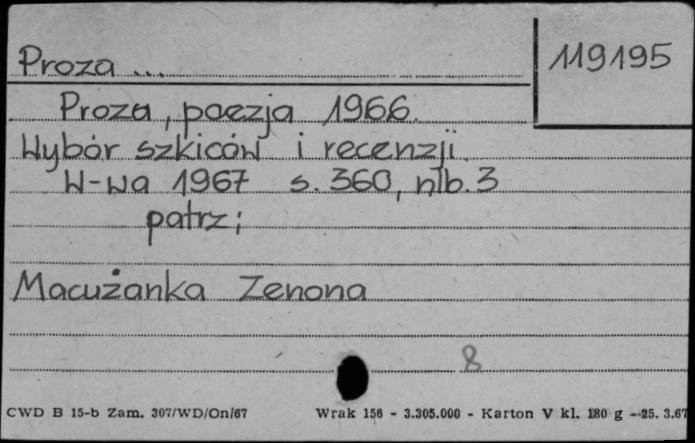 Proza ...
119195
Proza, poezja 1966.
Wybór szkiców i recenzji.
W-wa 1967 s. 360, nlb. 3
patrz;
Macużanka Zenona
8
CWD B 15-b Zam. 307/WD/On/67 Wrak 156 - 3.305.000 - Karton V kl. 180 g - 25. 3.67